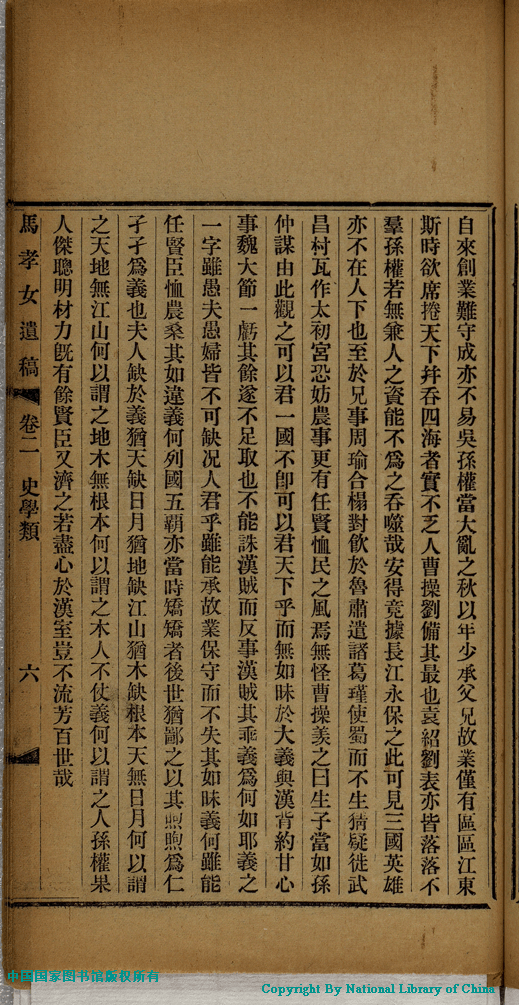 自來創業難守成亦不易吳孫權當大亂之秋以年少承父兄故業僅有區區江東
斯時欲席捲天下幷吞四海者實不乏人曹操劉備其最也袁紹劉表亦皆落落不
羣孫權若無兼人之資能不爲之吞噬哉安得竟據長江永保之此可見三國英雄
亦不在人下也至於兄事周瑜合榻對飮於魯肅遣諸葛瑾使蜀而不生猜疑徙武
昌村瓦作太初宮恐妨農事更有任賢恤民之風焉無怪曹操羨之曰生子當如孫
仲謀由此觀之可以君一國不卽可以君天下乎而無如昧於大義與漢背約甘心
事魏大節一虧其餘遂不足取也不能誅漢賊而反事漢賊其乖義爲何如耶義之
一字雖愚夫愚婦皆不可缺况人君乎雖能承故業保守而不失其如昧義何雖能
任賢臣恤農桑其如違義何列國五霸亦當時矯矯者後世猶鄙之以其煦煦爲仁
孑孑爲義也夫人缺於義猶天缺日月猶地缺江山猶木缺根本天無日月何以謂
之天地無江山何以謂之地木無根本何以謂之木人不仗義何以謂之人孫權果
人傑聰明材力旣有餘賢臣又濟之若盡心於漢室豈不流芳百世哉
馬孝女遺稿 卷二 史學類 六
中国国家图书馆版权所有
Copyright By National Library of China